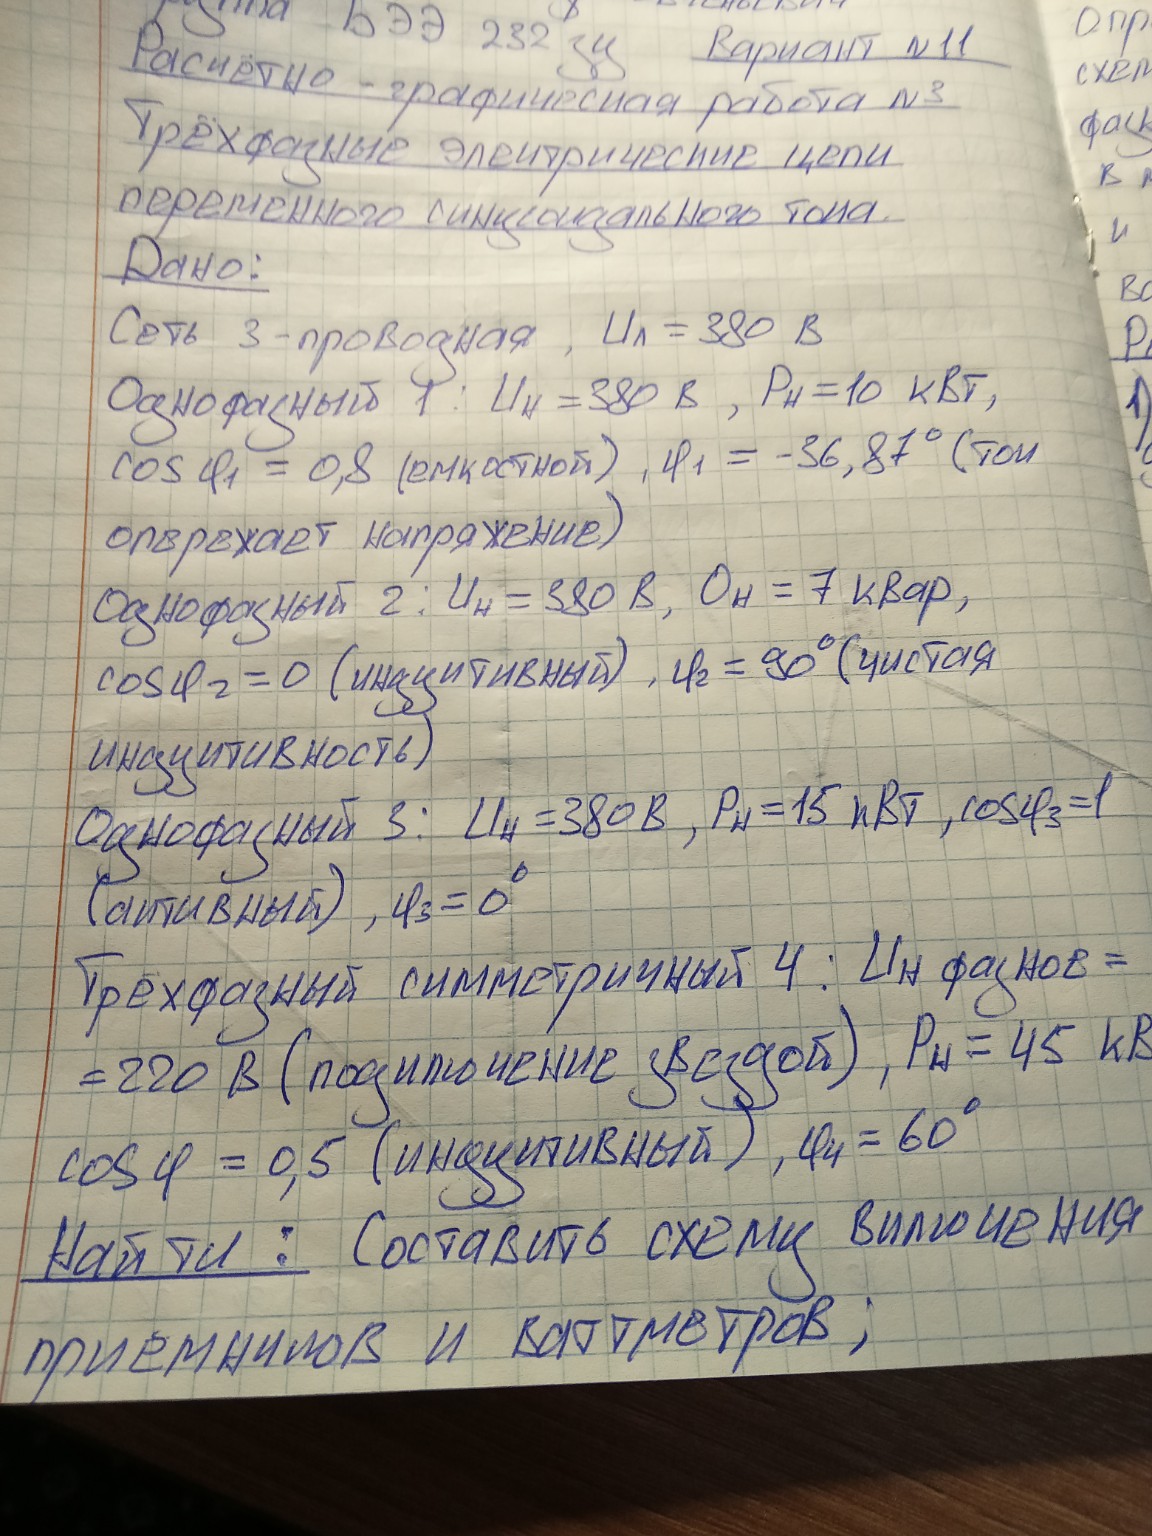 БЭЭ 232
зу Вариант N11
Расчётно-графическая работа N3
Трёхфазные электрические цепи
переменного синусоидального тока.
Дано:
Сеть 3-проводная, Uл = 380 В
Однофазный 1: Uн = 380 В, Pн = 10 кВт,
cosφ1 = 0,8 (емкостной), φ1 = -36,87° (ток
опережает напряжение)
Однофазный 2: Uн = 380 В, Qн = 7 квар,
cosφ2 = 0 (индуктивный), φ2 = 90° (чистая
индуктивность)
Однофазный 3: Uн = 380 В, Pн = 15 кВт, cosφ3 = 1
(активный), φ3 = 0°
Трёхфазный симметричный 4: Uн фазнов =
= 220 В (подключение звездой), Pн = 45 кВ
cosφ = 0,5 (индуктивный), φ4 = 60°
Найти: Составить схему включения
приемников и ваттметров;
Опр
схем
фаз
в
и
1)